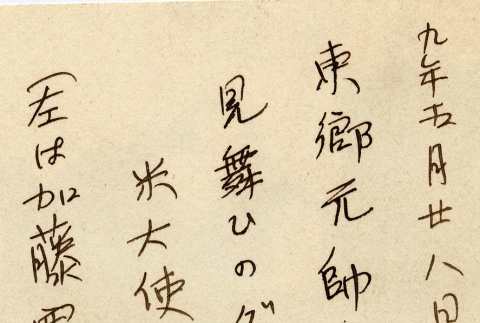 九年五月廿八日
東郷元帥
見舞ひのグ
米大使
(左は加藤